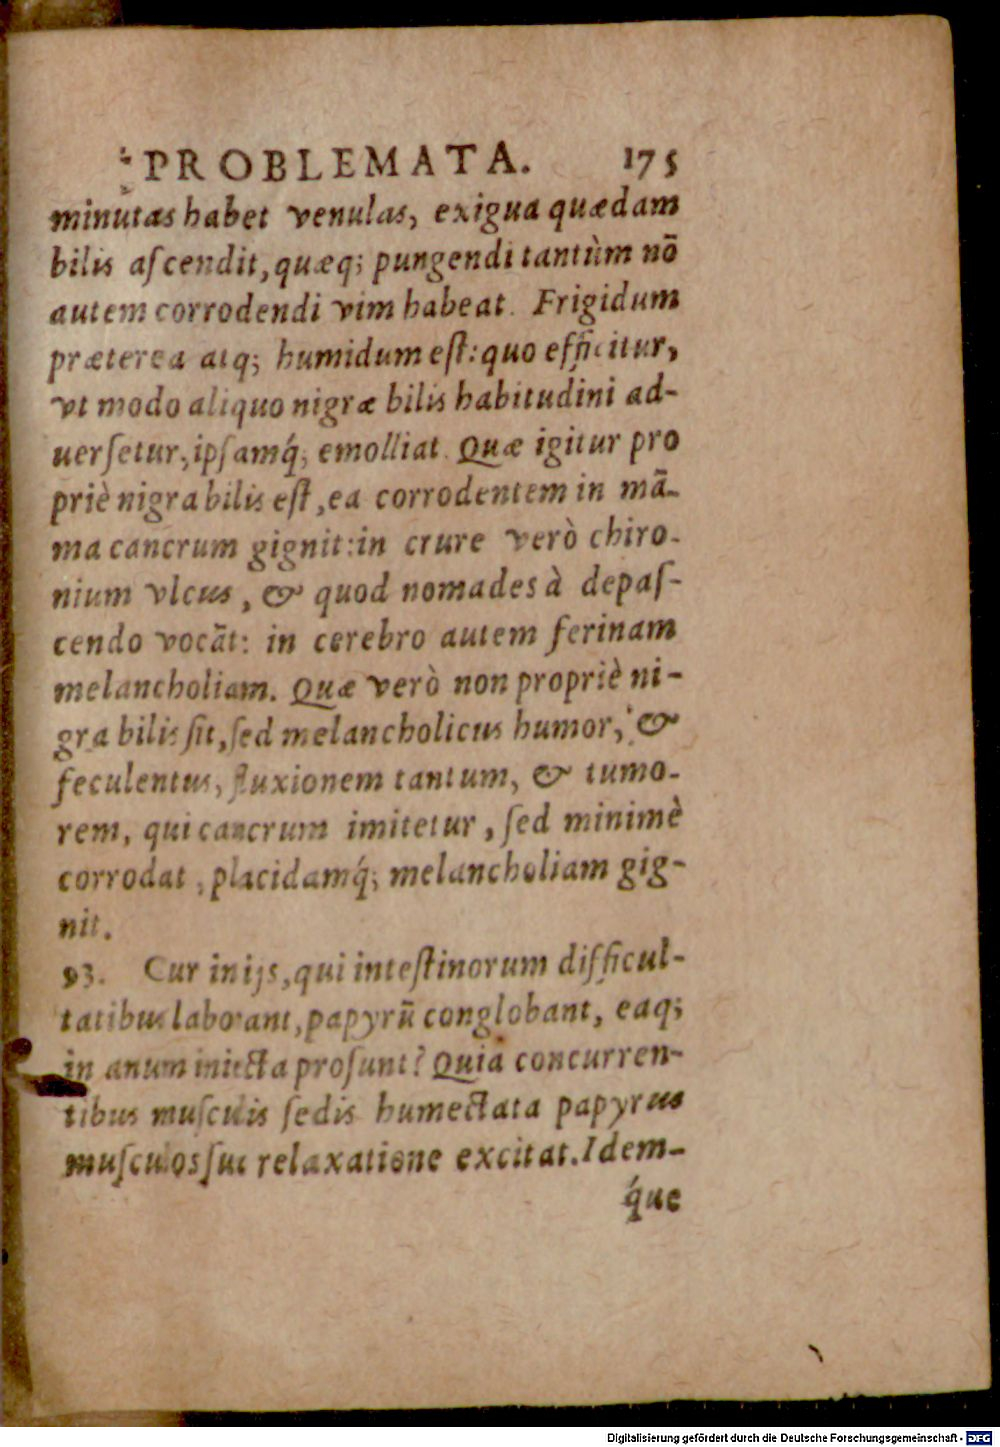 PROBLEMATA. 175
minutas habet venulas, exigua quædam
bilis aſcendit, quæq; pungendi tantùm nō
autem corrodendi vim habeat. Frigidum
præterea atq; humidum eſt: quo efficitur,
vt modo aliquo nigræ bilis habitudini ad-
uerſetur, ipſamq́; emolliat. Quæ igitur pro
priè nigra bilis eſt, ea corrodentem in mā-
ma cancrum gignit: in crure verò chiro-
nium vlcus, & quod nomades à depaſ-
cendo vocāt: in cerebro autem ferinam
melancholiam. Quæ verò non propriè ni-
gra bilis ſit, ſed melancholicus humor, &
feculentus, fluxionem tantum, & tumo-
rem, qui cancrum imitetur, ſed minimè
corrodat, placidamq́; melancholiam gig-
nit.
93. Cur in ijs, qui inteſtinorum difficul-
tatibus laborant, papyrū conglobant, eaq;
in anum iniecta proſunt? Quia concurren-
tibus muſculis ſedis humectata papyrus
muſculos ſui relaxatione excitat. Idem-
q́ue
Digitalisierung gefördert durch die Deutsche Forschungsgemeinschaft - DFG